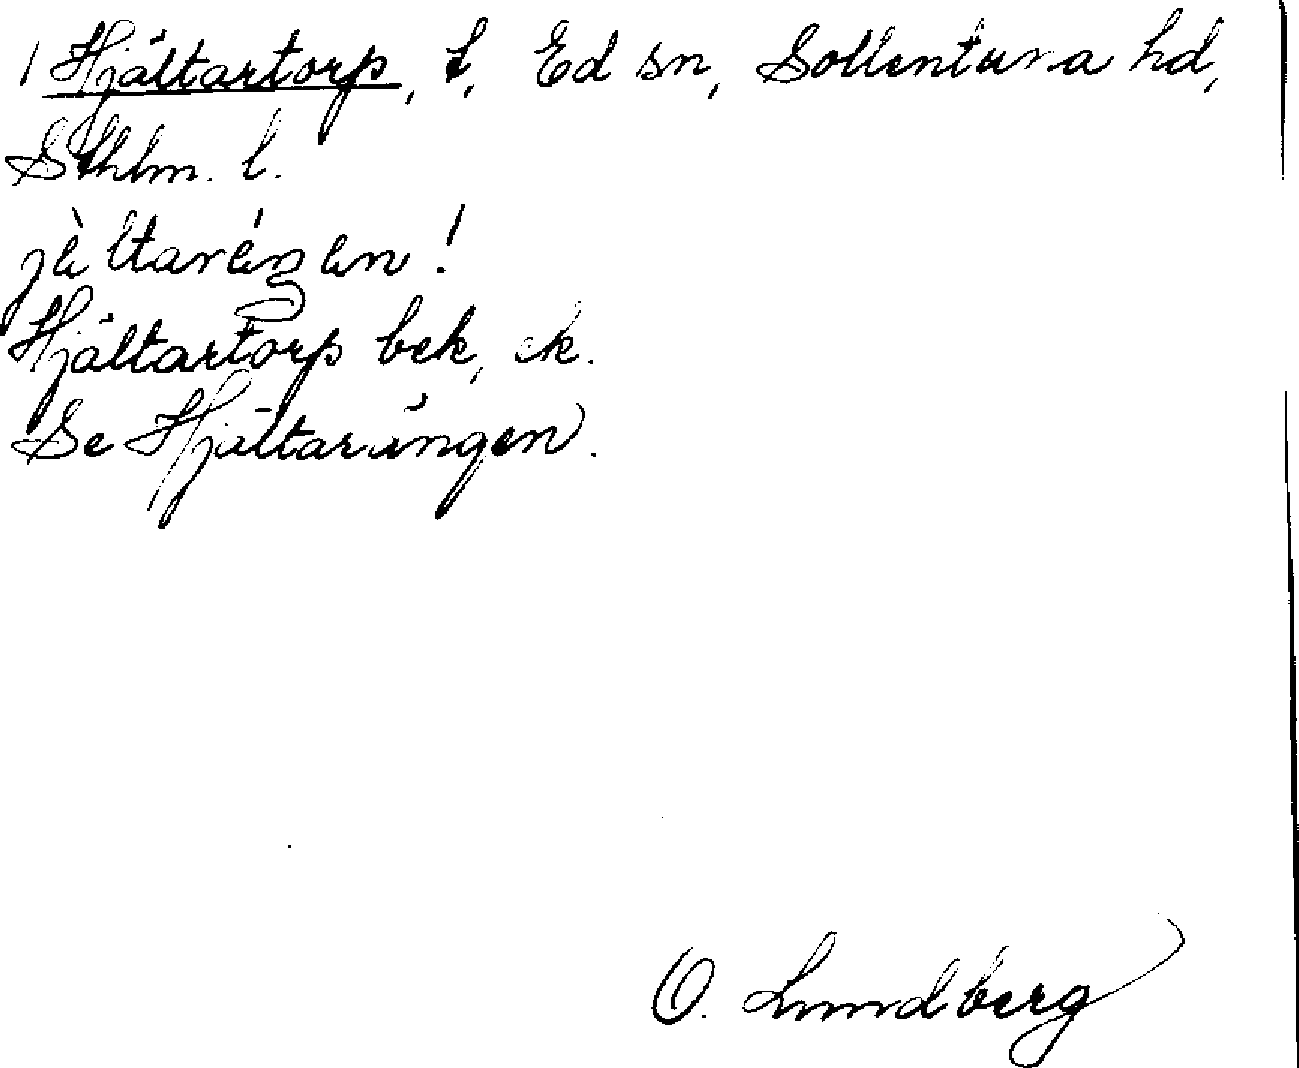 1 Hjältartorp, t, Ed sn, Sollentuna hd,
Sthlm. l.
Hjältartorp bek, ek.
Se Hjältarängen.
O. Lundberg